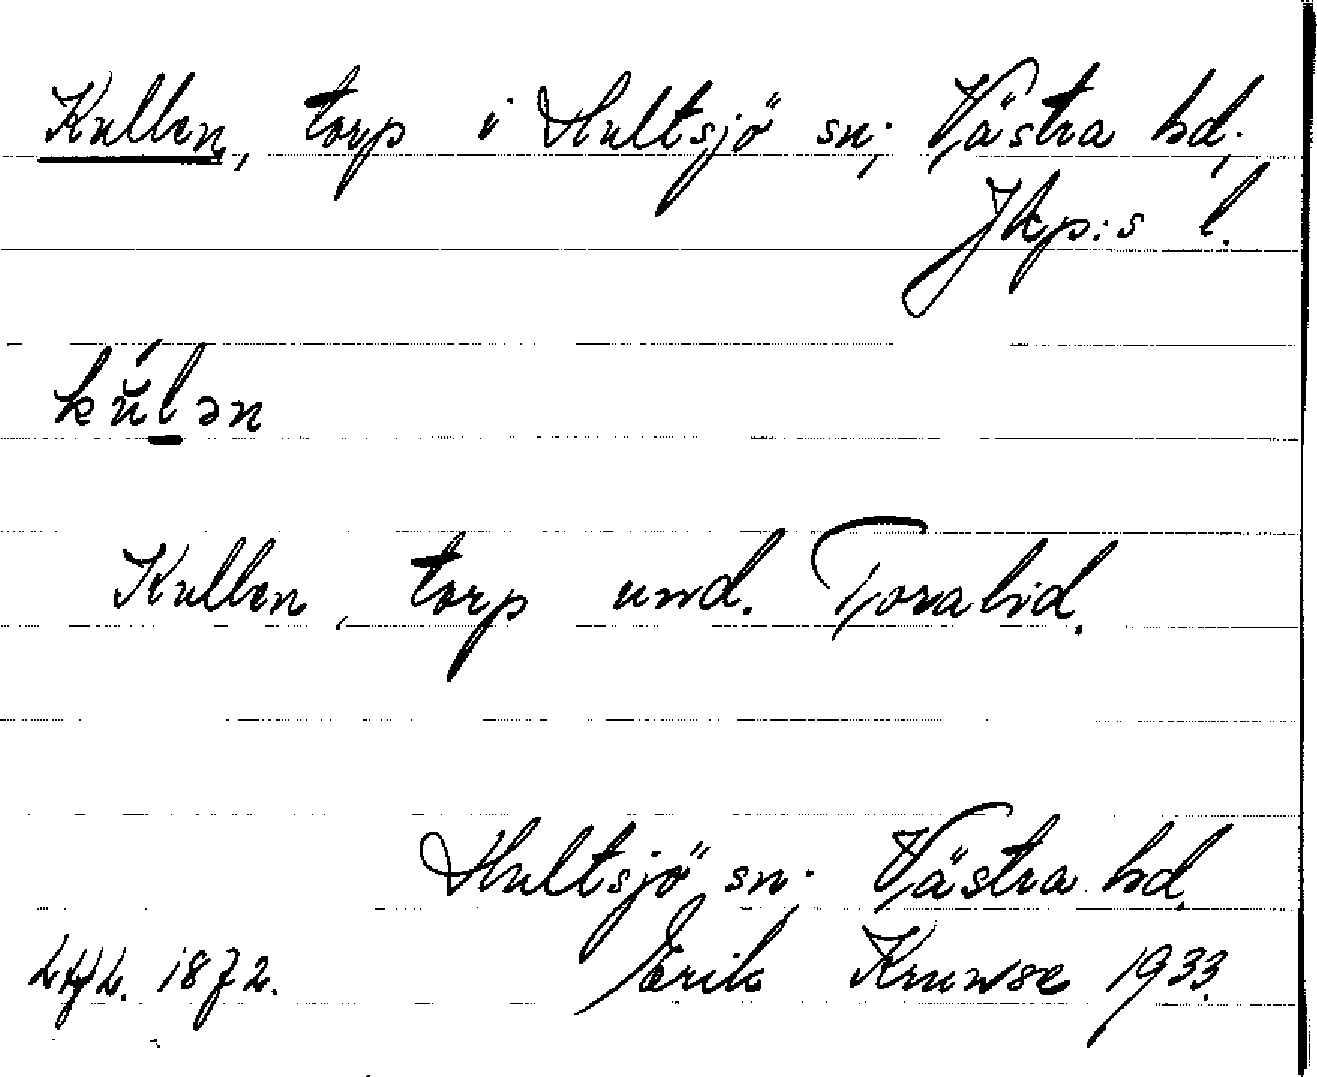 Kullen, torp i Hultsjö sn; Västra hd;
Jkp:s l.
kŭ́l̲ən
Kullen, torp und. Toralid.
Hultsjö sn. Västra hd.
1872. Erik Kruuse 1933.